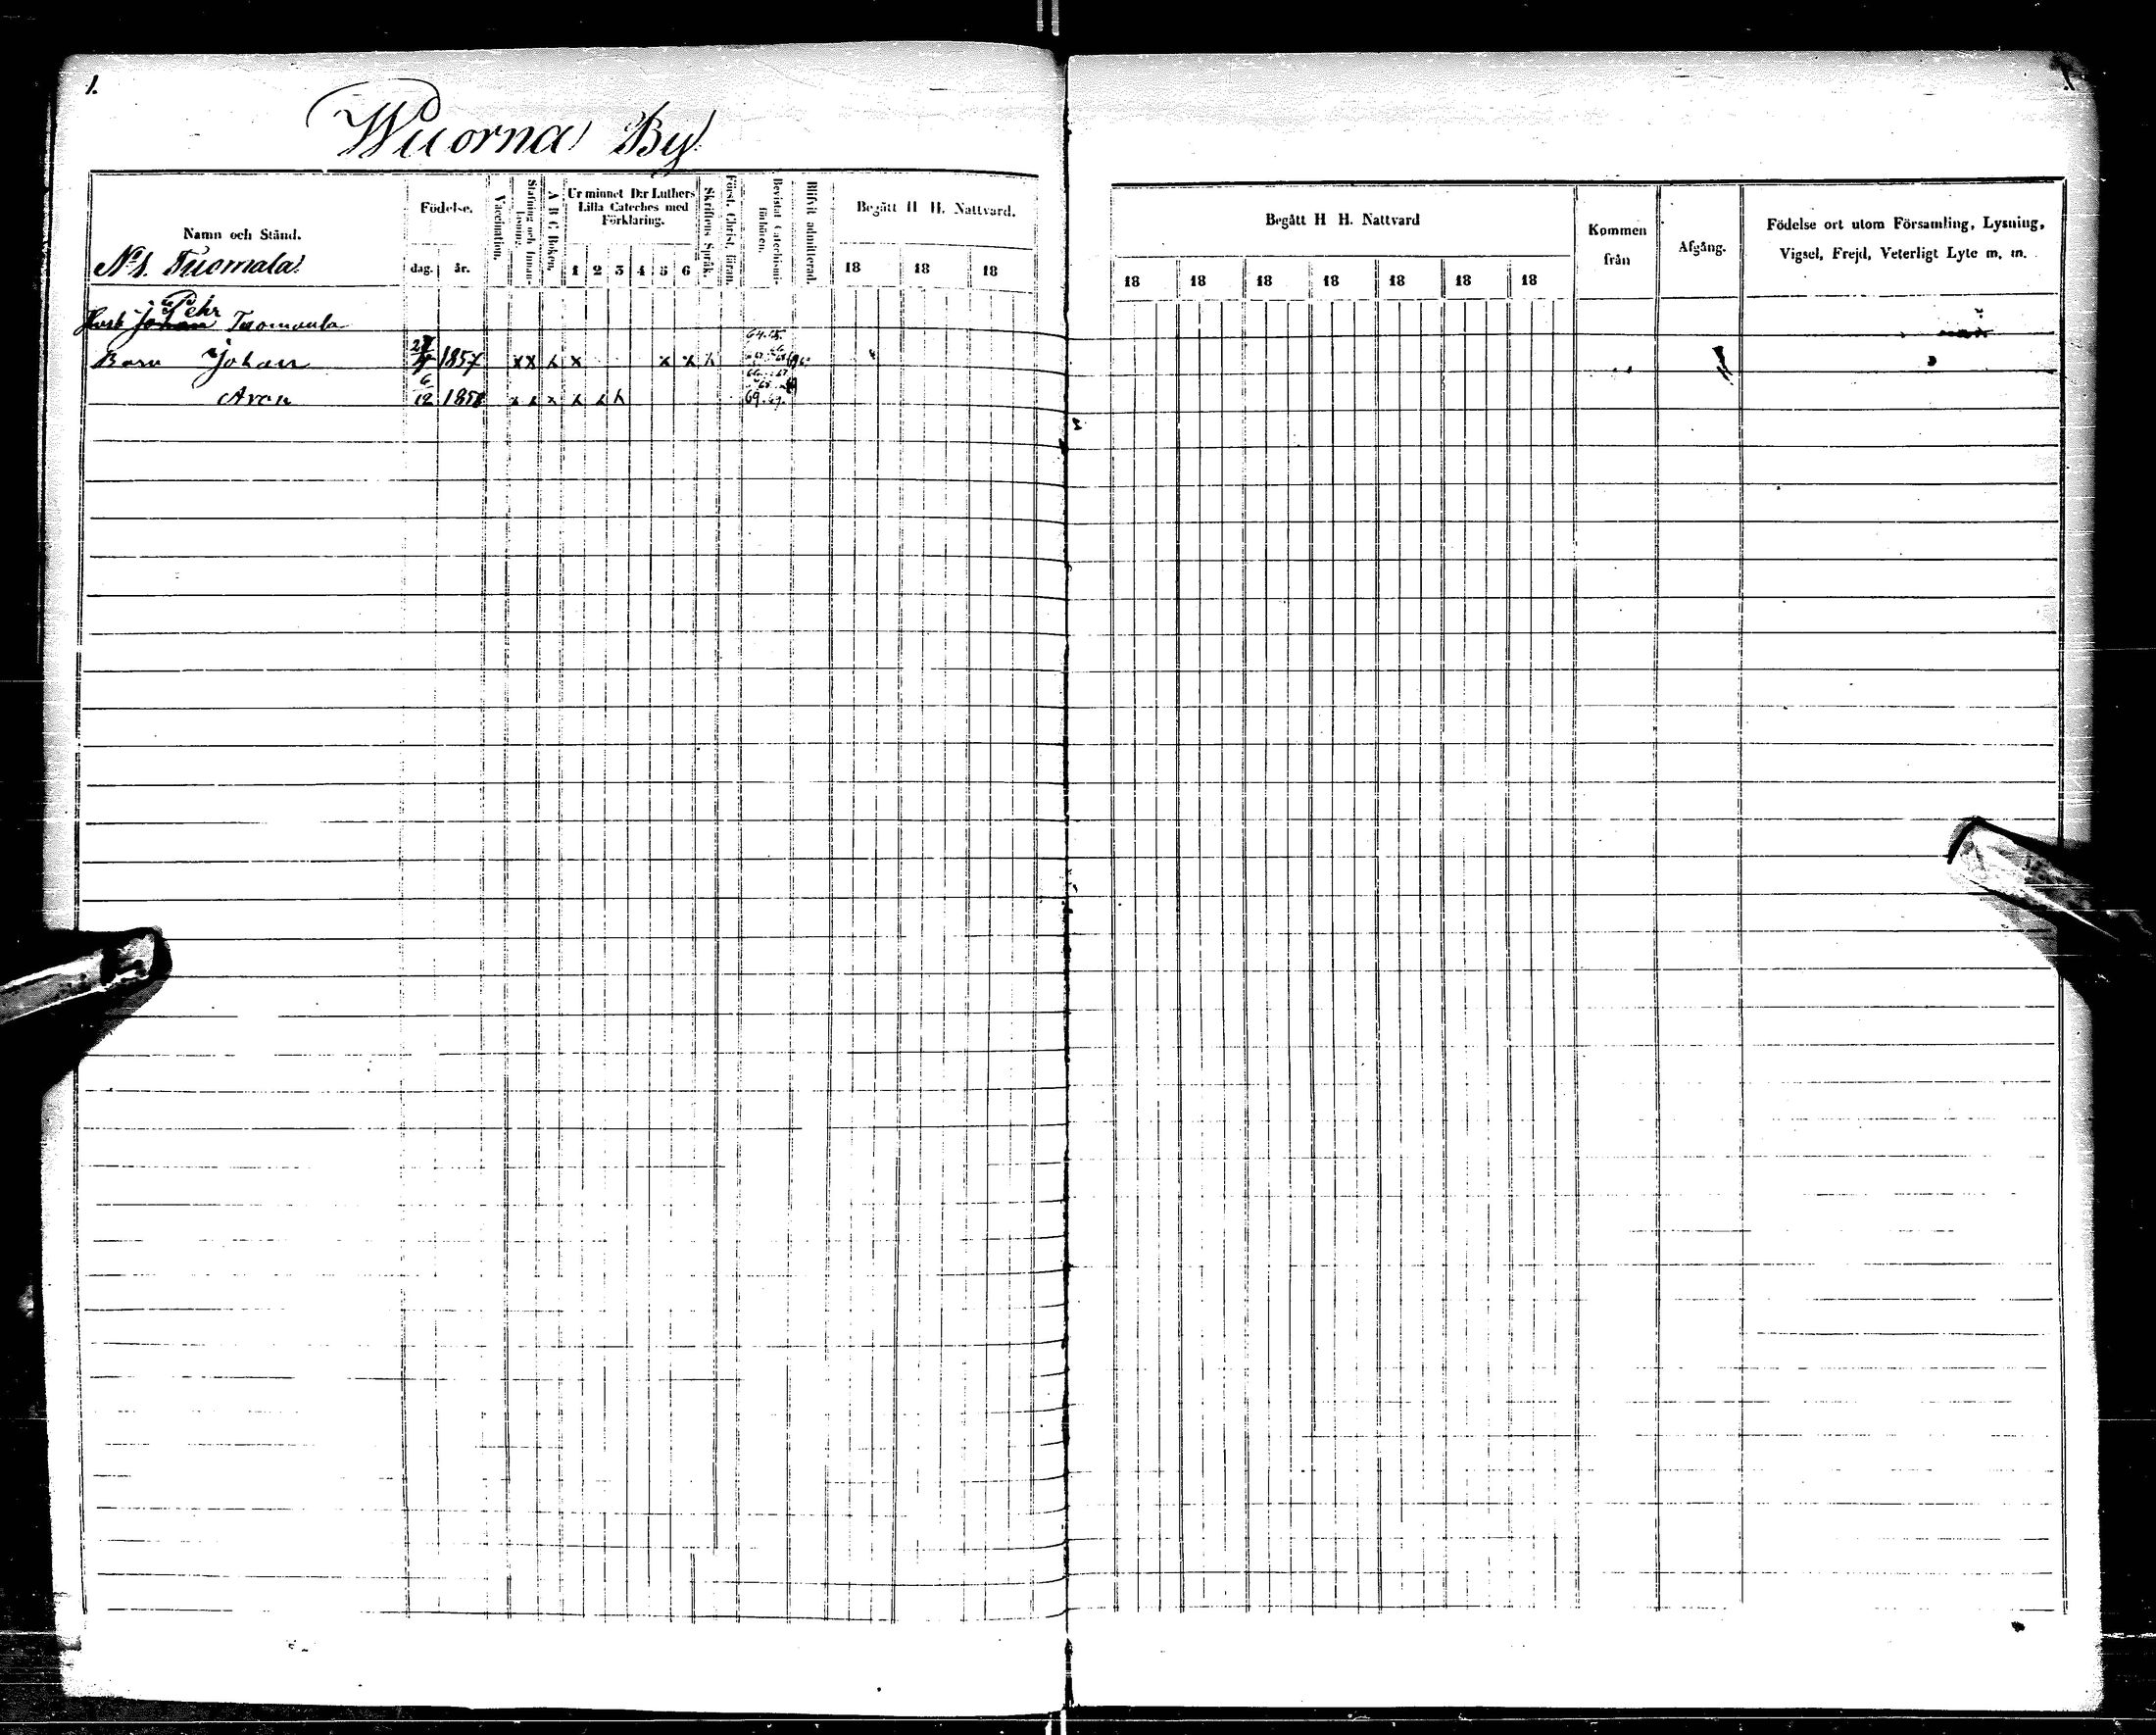 1.
Wuorna By
Namn och Stånd.
Födelse.
dag. år.
Vaccination.
Stafning och Innan-läsning.
A B C Boken.
Ur minnet D:r Luthers Lilla Cateches med Förklaring.
1 2 3 4 5 6
Skriftens Språk.
Först. Christ. läran.
Bevistat Catechismi-förhören.
Blifvit admitterad.
Begått H H. Nattvard.
18 18 18
No 1. Tuomala
Pehr
Johan Tuomaala
Barn Johan 1857 x x x x x x x
64. 65.
Aron 6/12 1858 x x x x x x
69.
Begått H H. Nattvard
18 18 18 18 18 18 18
Kommen från
Afgång.
Födelse ort utom Församling, Lysning,
Vigsel, Frejd, Veterligt Lyte m. m.